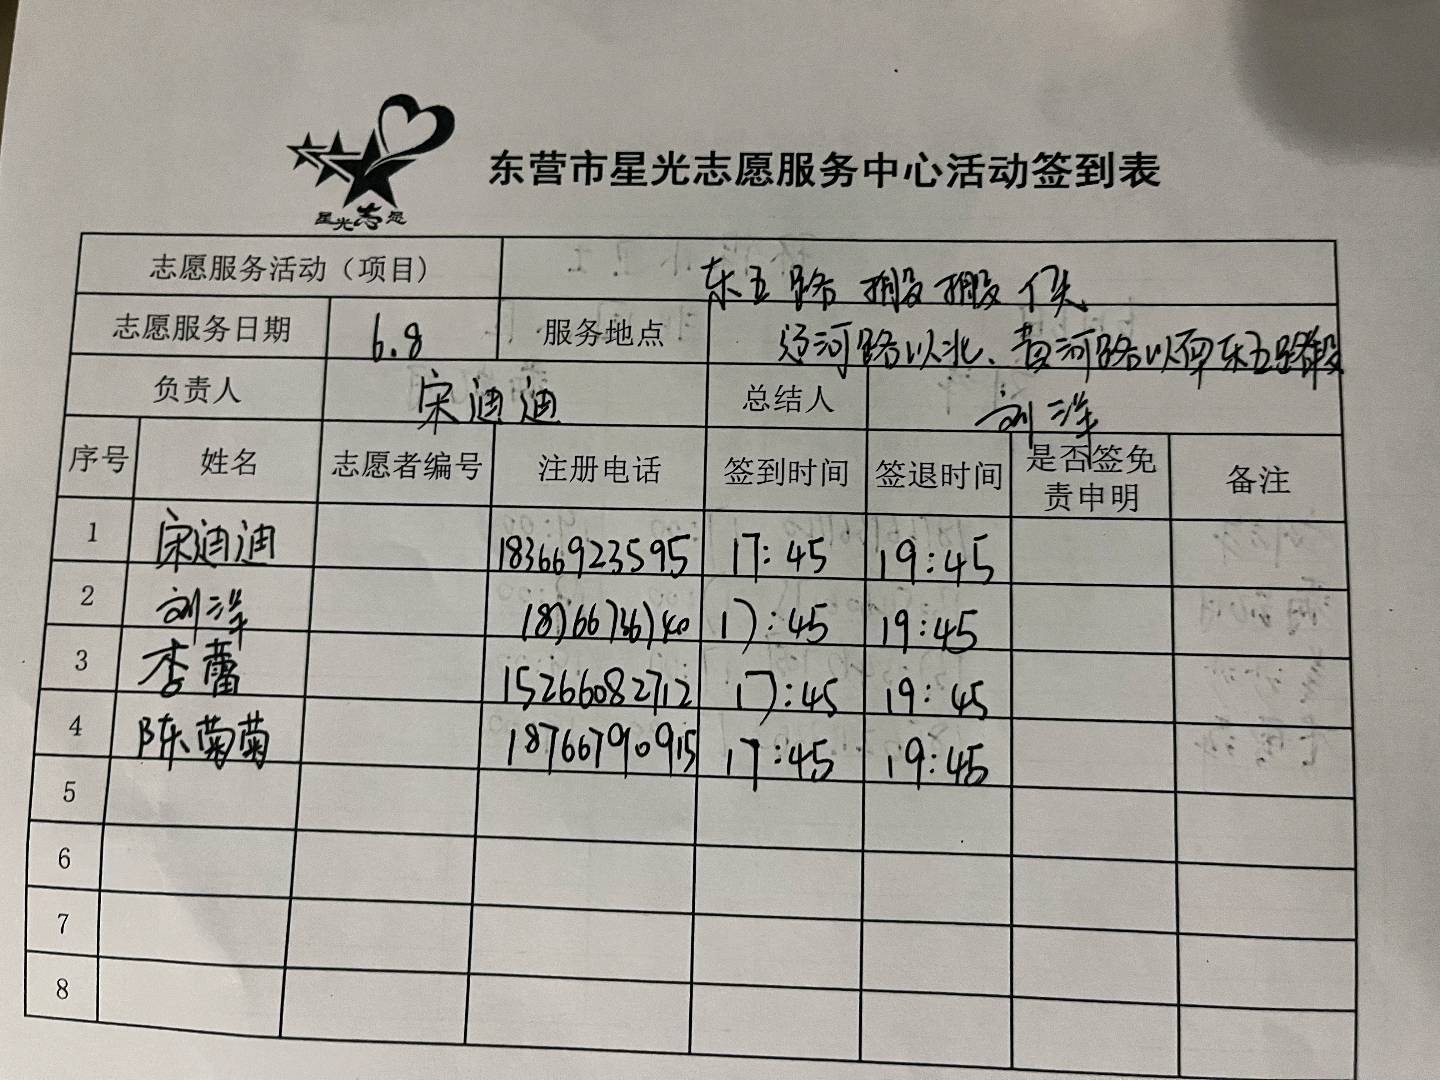 星光志愿
东营市星光志愿服务中心活动签到表
志愿服务活动（项目） 东五路 搬搬 行头
志愿服务日期 6.8 服务地点 辽河路以北、黄河路以 东五路段
负责人 宋迪迪 总结人 刘洋
序号 姓名 志愿者编号 注册电话 签到时间 签退时间 是否签免责申明 备注
1 宋迪迪 18366923595 17:45 19:45
2 刘洋 17:45 19:45
3 李蕾 15266082712 17:45 19:45
4 陈菊菊 18766790915 17:45 19:45
5
6
7
8